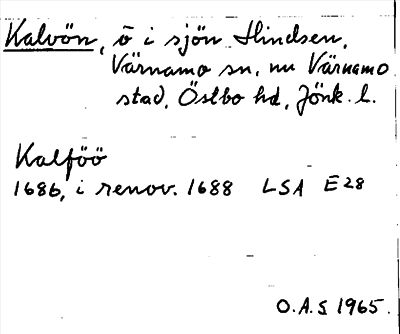 Kalvön, ö i sjön Hindsen,
Värnamo sn, nu Värnamo
stad, Östbo hd, Jönk. l.
Kalföö
1686, i renov. 1688 LSA E28
O.A.S 1965.